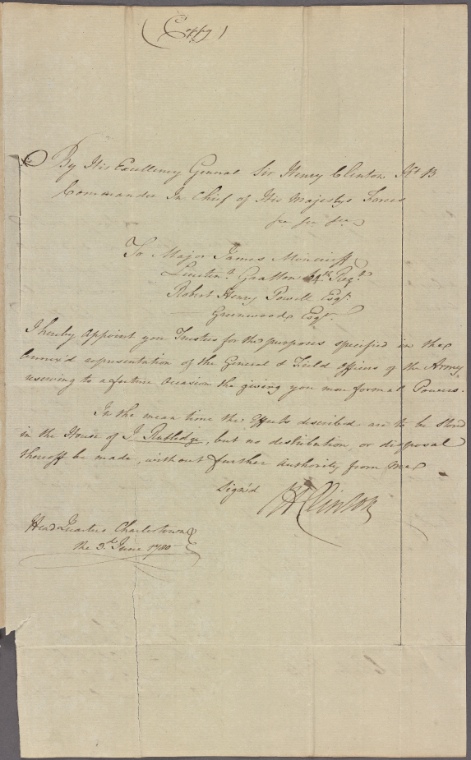 (Copy)
By His Excellency General Sir Henry Clinton Kt B
Commander In Chief of His Majestys Forces
&c &c &c
To Major James Moncrieff
Lieutent. Gratton 64th Regt.
Robert Henry Powell Esqr.
Greenwoods Esqr.
I hereby Appoint you Trustees for the purposes specified in the
Annex'd representation of the General & Field Officers of the Army,
reserving to a future Occasion the giving you more formal Powers.
In the mean time the Effects described are to be stored
in the House of J. Rutledge, but no distribution or disposal
thereoff be made, without further Authority from me
Signed H Clinton
Head Quarters Charlestown
the 3d. June 1780